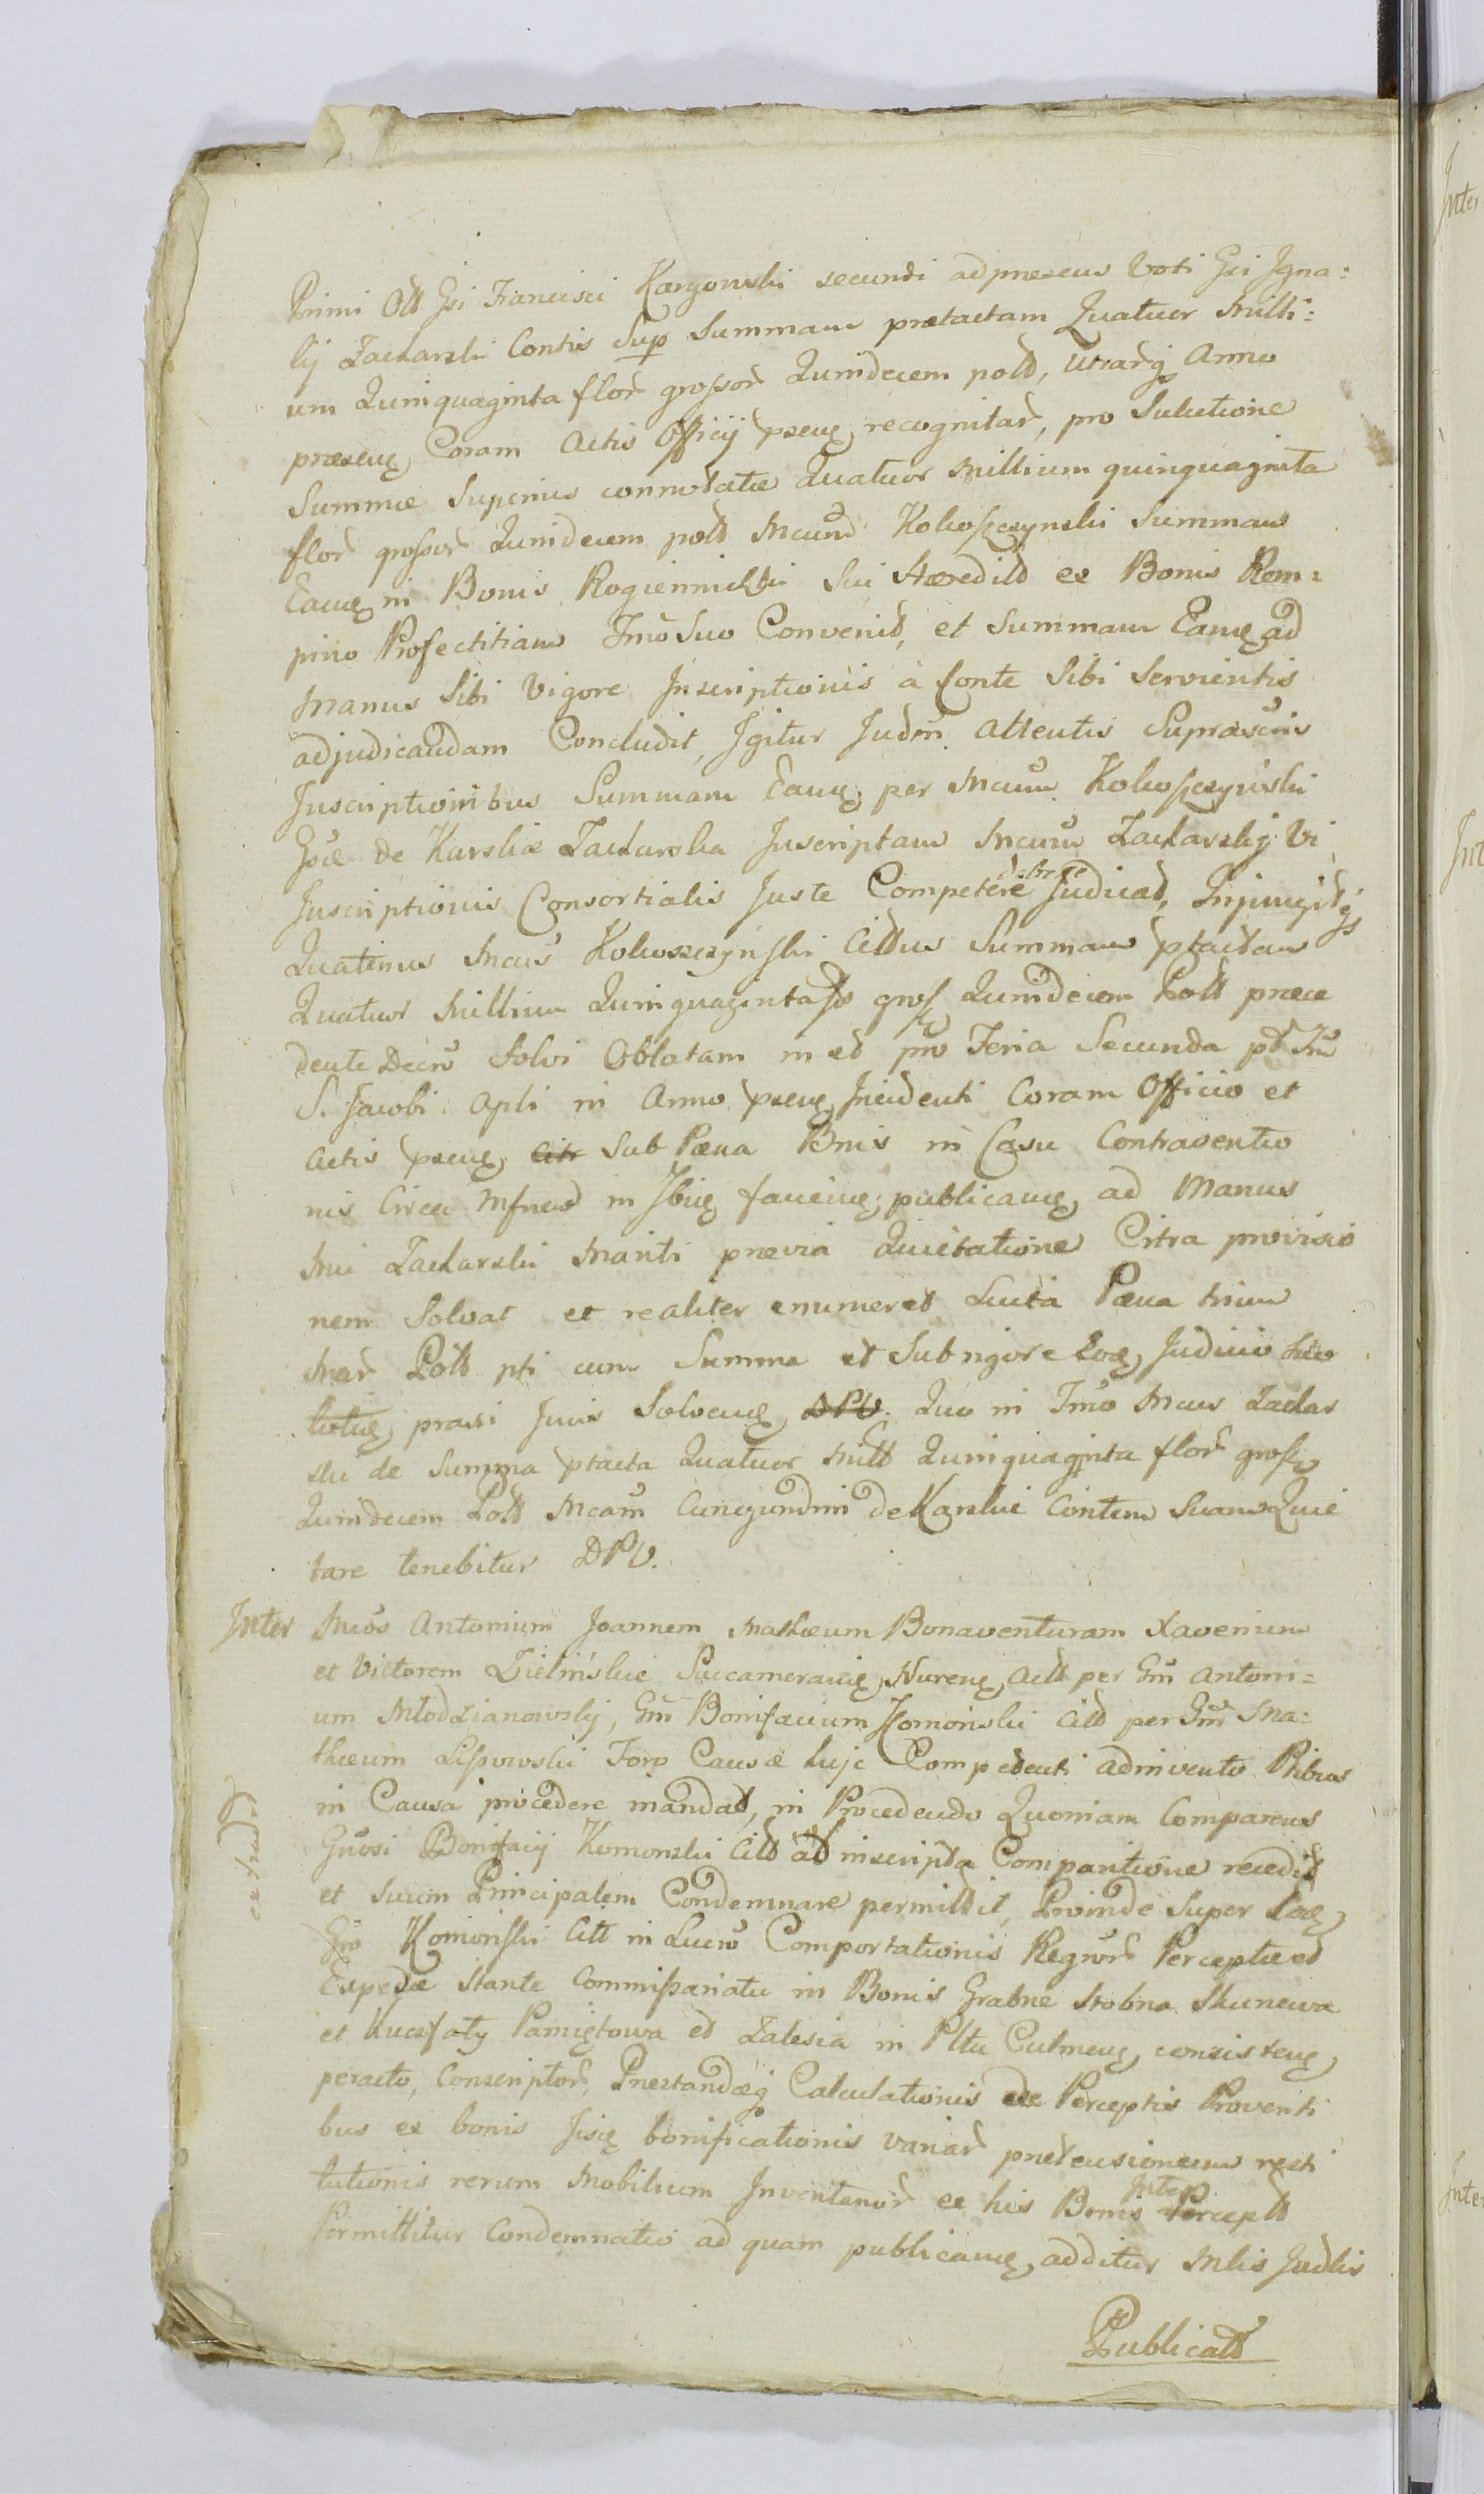 Primi Olt Gsi Francisci Kargowski secundi ad praesens Voti Gsi Igna:
tij Zackarski Contis Sup Summam praetactam Quatuor Milli:
um Quinquaginta flor grossor Quindecem poll, utrarq Anno
praesenq Coram Actis Officij psenq recognitar, pro Solutione
Summae Superius connotatae Quatuor Millium quinquaginta
flor grossor Quindecem poll Mcum Kokoszczynski Summam
Eanq in Bonis Rogiennichbi Sui Haeredit ex Bonis Rem:
pino Profectitiam Tmo Suo Convenit, et Summam Eanq ad
Manus Sibi Vigore Inscriptionis à Conte Sibi Servientis
adjudicandam Concludit, Igitur Judm attentis Suprascris
Inscriptionibus Summam Eanq per Mcum Kokoszczynski
Gsae de Karskie Zackarska Inscriptam Mcum Zackarskij Vi
Inscriptionis Consortialis Juste Competere debere Judicat, Injungitq
Quatenus Mcus Kokoszczynski Cittus Summam ptactam
Quatuor Millium Quinquaginta fl gross Quindecem Poll praece
dente Decro Solvi Oblatam in et pro Feria Secunda pt Fm
S. Jacobi Apli in Anno psenq Incidenti Coram Officio et
Actis psenq Citr Sub Paena Bnis in Casu Contraventio
nis Circa in Ibiq publicanq ad Manus
Mci Zackarski Mariti praevia Quietatione Citra provisio
nem Solvat et realiter enumeret Lucta Paena trium
Mar Poll pti cum Summa et Sub rigore Judicio
Juris Solvenq DPU. Quo in Tmo Mcus Zackar
ski de Summa ptacta Quatuor Mill Quinquaginta flor gross
Quindecem Poll Mcam Cunegundim de Karskie Contem Suam Quie
tare tenebitur DPU.
Inter Mcos Antonium Joannem Mathaeum Bonaventuram Xaverium
et Victorem Zielińskie Succameraniq Nurenq Actt per Gm Antoni=
um Młodzianowskij, Gm Bonifacium Komoński Citt per Gm Ma:
thaeum Lissowski Foro Causae hujc Competenti adinvento Ptibus
in Causa procedere mandat, in Procedendo Quoniam Comparens
Gnosi Bonifacij Komonski Citt ab inscripta Comparitione recedit
et suum Principalem Condemnare permittit, Proinde Super
Gso Komonski Citt in Lucro Comportationis Regror Perceptae et
Expensae Stante Commissariatu in Bonis Grabne Stobna Skunewa
et Kuczfaty Pamiętowa et Zalesia in Pltu Culmenq consistenq
peracto, Conscriptor, Praestandaeq Calculationis de Perceptis Proventi
bus ex bonis Iisiq bonificationis variar praetensionum resti
tutionis rerum Mobilium Inventarior ex his Bonis Intep Percept
Permittitur Condemnatio ad quam publicanq additur Mlis Judlis
Publicatt
extradt